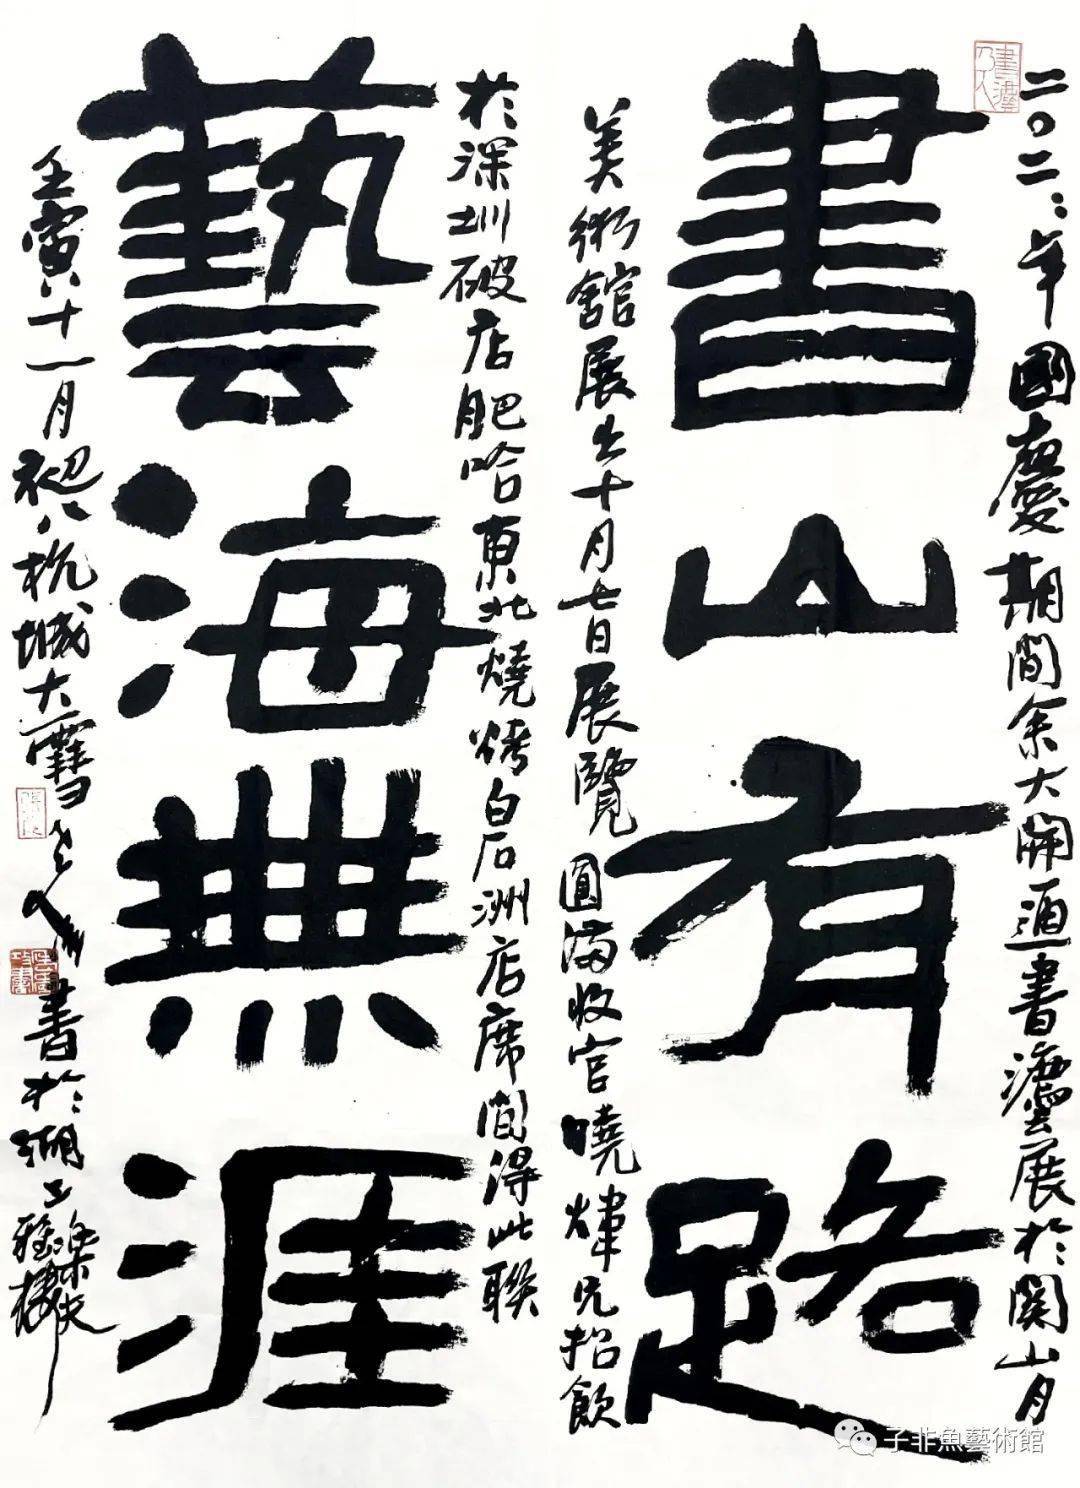 二〇二二年國慶期間余大開通書灋展於関山月
書山有路
美術館展出十月七日展覽圓滿收官曉煒兄招飲
於深圳破店肥哈東北燒烤白石洲店席間得此聯
藝海無涯
壬寅十一月初八杭城大雪 書於湖上
子非魚藝術館